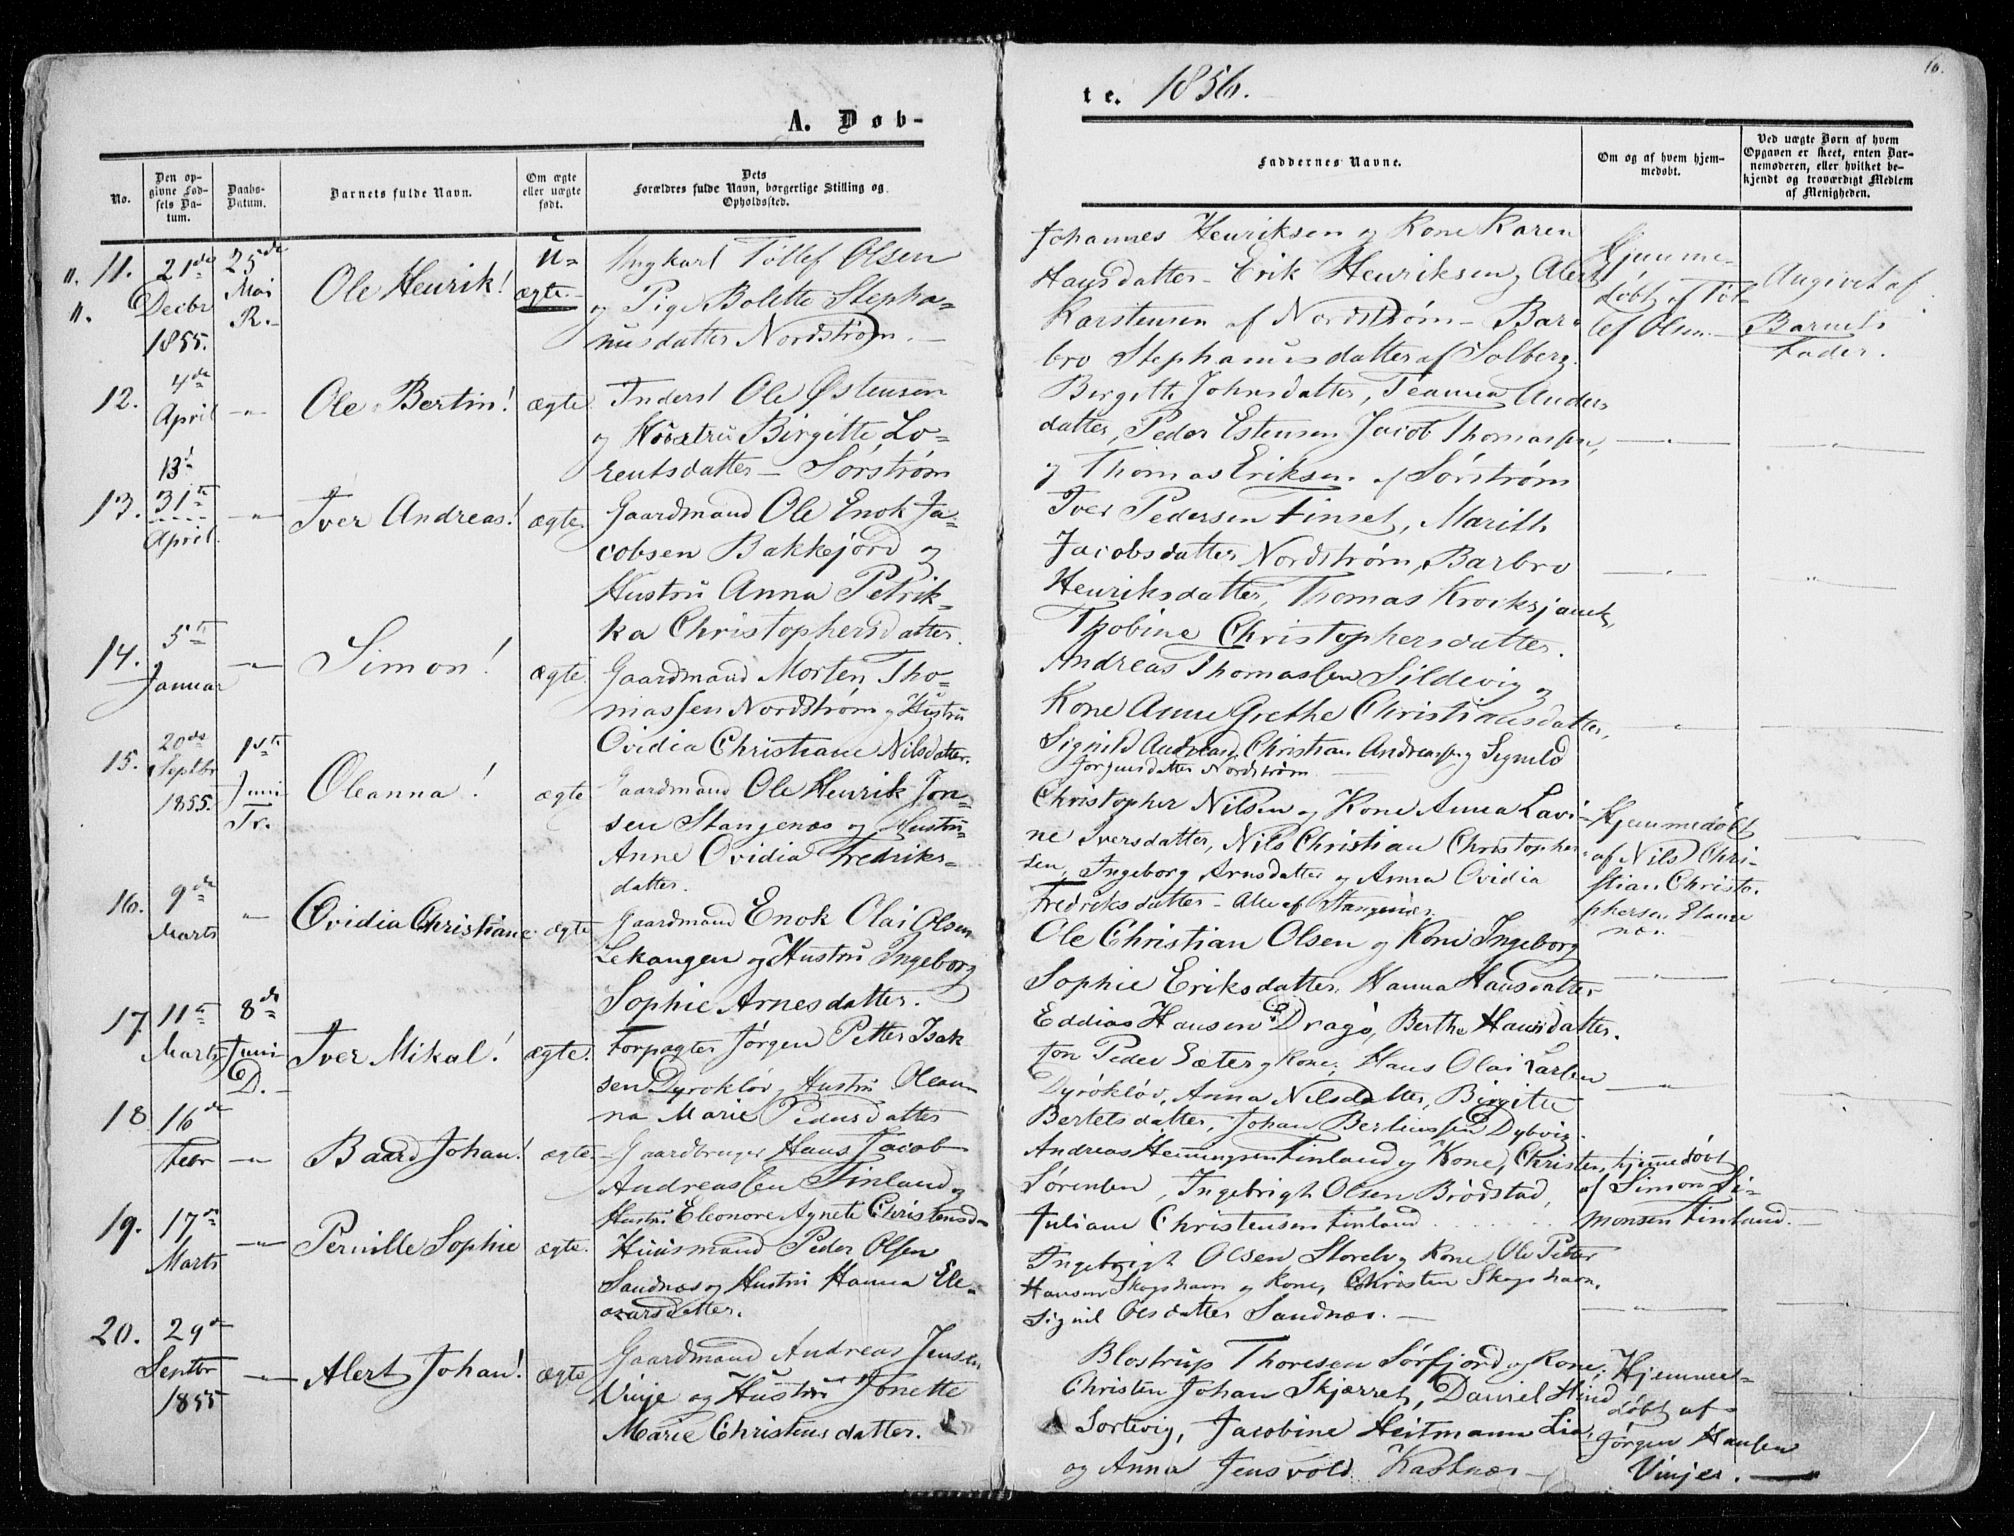 16.
A. Døb-
te. 1856.
No.
Den op-
givne Fød-
sels Da-
tum.
Daabs-
Datum.
Barnets fulde Navn.
Om ægte
eller uægte
født.
Dets
Forældres fulde Navn, borgerlige Stilling og
Opholdssted.
Faddernes Navne.
Om og af hvem hjem-
medøbt.
Ved uægte Børn af hvem
Opgaven er skeet, enten Bar-
nemoderen, eller hvilket be-
kjendt og troværdigt Medlem
af Menigheden.
11.
21de
Decbr
1855.
25de
Mai
R.
Ole Henrik!
u-
ægte.
Ungkarl Tollef Olsen
og Pige Bolette Stepha-
nusdatter Nordstrøm.
Johannes Henriksen og Kone Karen
Hansdatter Erik Henriksen og Alert
Karstensen af Nordstrøm - Bar-
bro Stephanusdatter af Solberg.
Hjemme-
døbt af Tol-
lef Olsen.
Angivet af
Barnets
Fader.
12.
4de
April
Ole Bertin!
ægte
Inderst Ole Østensen
og Hustru Birgitte Lo-
rentsdatter - Sørstrøm
Birgitte Johnsdatter, Anders
datter, Peder Estensen, Jacob Thomassen,
og Thomas Eriksen af Sørstrøm
13.
13de
31te
April
Iver Andreas!
ægte.
Gaardmand Ole Enok Ja-
cobsen Bakkejord og
Hustru Anna Petrik-
ka Christophersdatter.
Iver Pedersen Finset, Marith
Jacobsdatter Nordstrøm, Barbro
Henriksdatter, Thomas
Thobine Christophersdatter.
14.
5te
Januar
Simon!
ægte.
Gaardmand Morten Tho-
massen Nordstrøm og Hustru
Ovidia Christiane Nilsdatter.
Andreas Thomassen Sildevig og
Kone Anne Grethe Christiansdatter,
Signild Andreasd, Christian Andreassen og Signild
Jørginsdatter Nordstrøm
15.
20de
Septbr
1855.
1ste
Juni
Tr.
Oleanna!
ægte
Gaardmand Ole Henrik Jon-
sen Stangenæs og Hustru
Anne Ovidia Fredriks-
datter.
Christopher Nilsen og Kone Anna Lavi-
ne Iversdatter, Nils Christian Christopher-
sen, Ingeborg Arnsdatter og Anna Ovidia
Fredriksdatter - Alle af Stangenæs.
Hjemmedøbt
af Nils Chri-
stian Christo-
phersen Stange
næs.
16.
9de
Marts
Ovidia Christiane
ægte.
Gaardmand Enok Olai Olsen
Lekangen og Hustru Ingeborg
Sophie Arnesdatter.
Ole Christian Olsen og Kone Ingeborg
Sophie Eriksdatter, Hanna Hansdatter
Eddias Hansen Dragø, Berthe Hansdatter.
17.
11te
Marts
8de
Juni
D.
Iver Mikal!
ægte.
Forpagter Jørgen Petter Isak
sen Dyrøkløv og Hustru Olean-
na Marie Pedersdatter
Peder Sæter og Kone, Hans Olai Larsen
Dyrøkløv, Anna Nilsdatter, Birgitte
Bertelsdatter, Johan Bertinussen Dybvig.
18
16de
Febr
Baard Johan!
ægte.
Gaardbruger Hans Jacob
Andreassen Finland og
Hustru Eleonore Agnete Christensd
Andreas Henningsen Finland og Kone, Christen
Sørensen, Ingebrigt Olsen Brødstad,
Juliane Christensen Finland
hjemedøbt
af Simon Si-
monsen Finland.
19.
17de
Marts
Pernille Sophie
ægte.
Huusmand Peder Olsen
Sandnæs og Hustru Hanna Ele-
azarsdatter.
Ingebrigt Olsen Storelv og Kone, Ole Petter
Hansen Skogshavn og Kone, Christen Skogshavn,
Signil Olsdatter Sandnæs.
20.
29de
Septbr
1855
Alert Johan!
ægte
Gaardmand Andreas Jensen
Vinje og Hustru Jonette
Marie Christensdatter.
Blostrup Thoresen Sørfjord og Kone,
Christen Johan Skjærret, Daniel Hind
Sortevig, Jacobine Heitmann Lia,
og Anna Jensvold Kastnæs
Hjemme-
døbt af
Jørgen Hansen
Vinje.